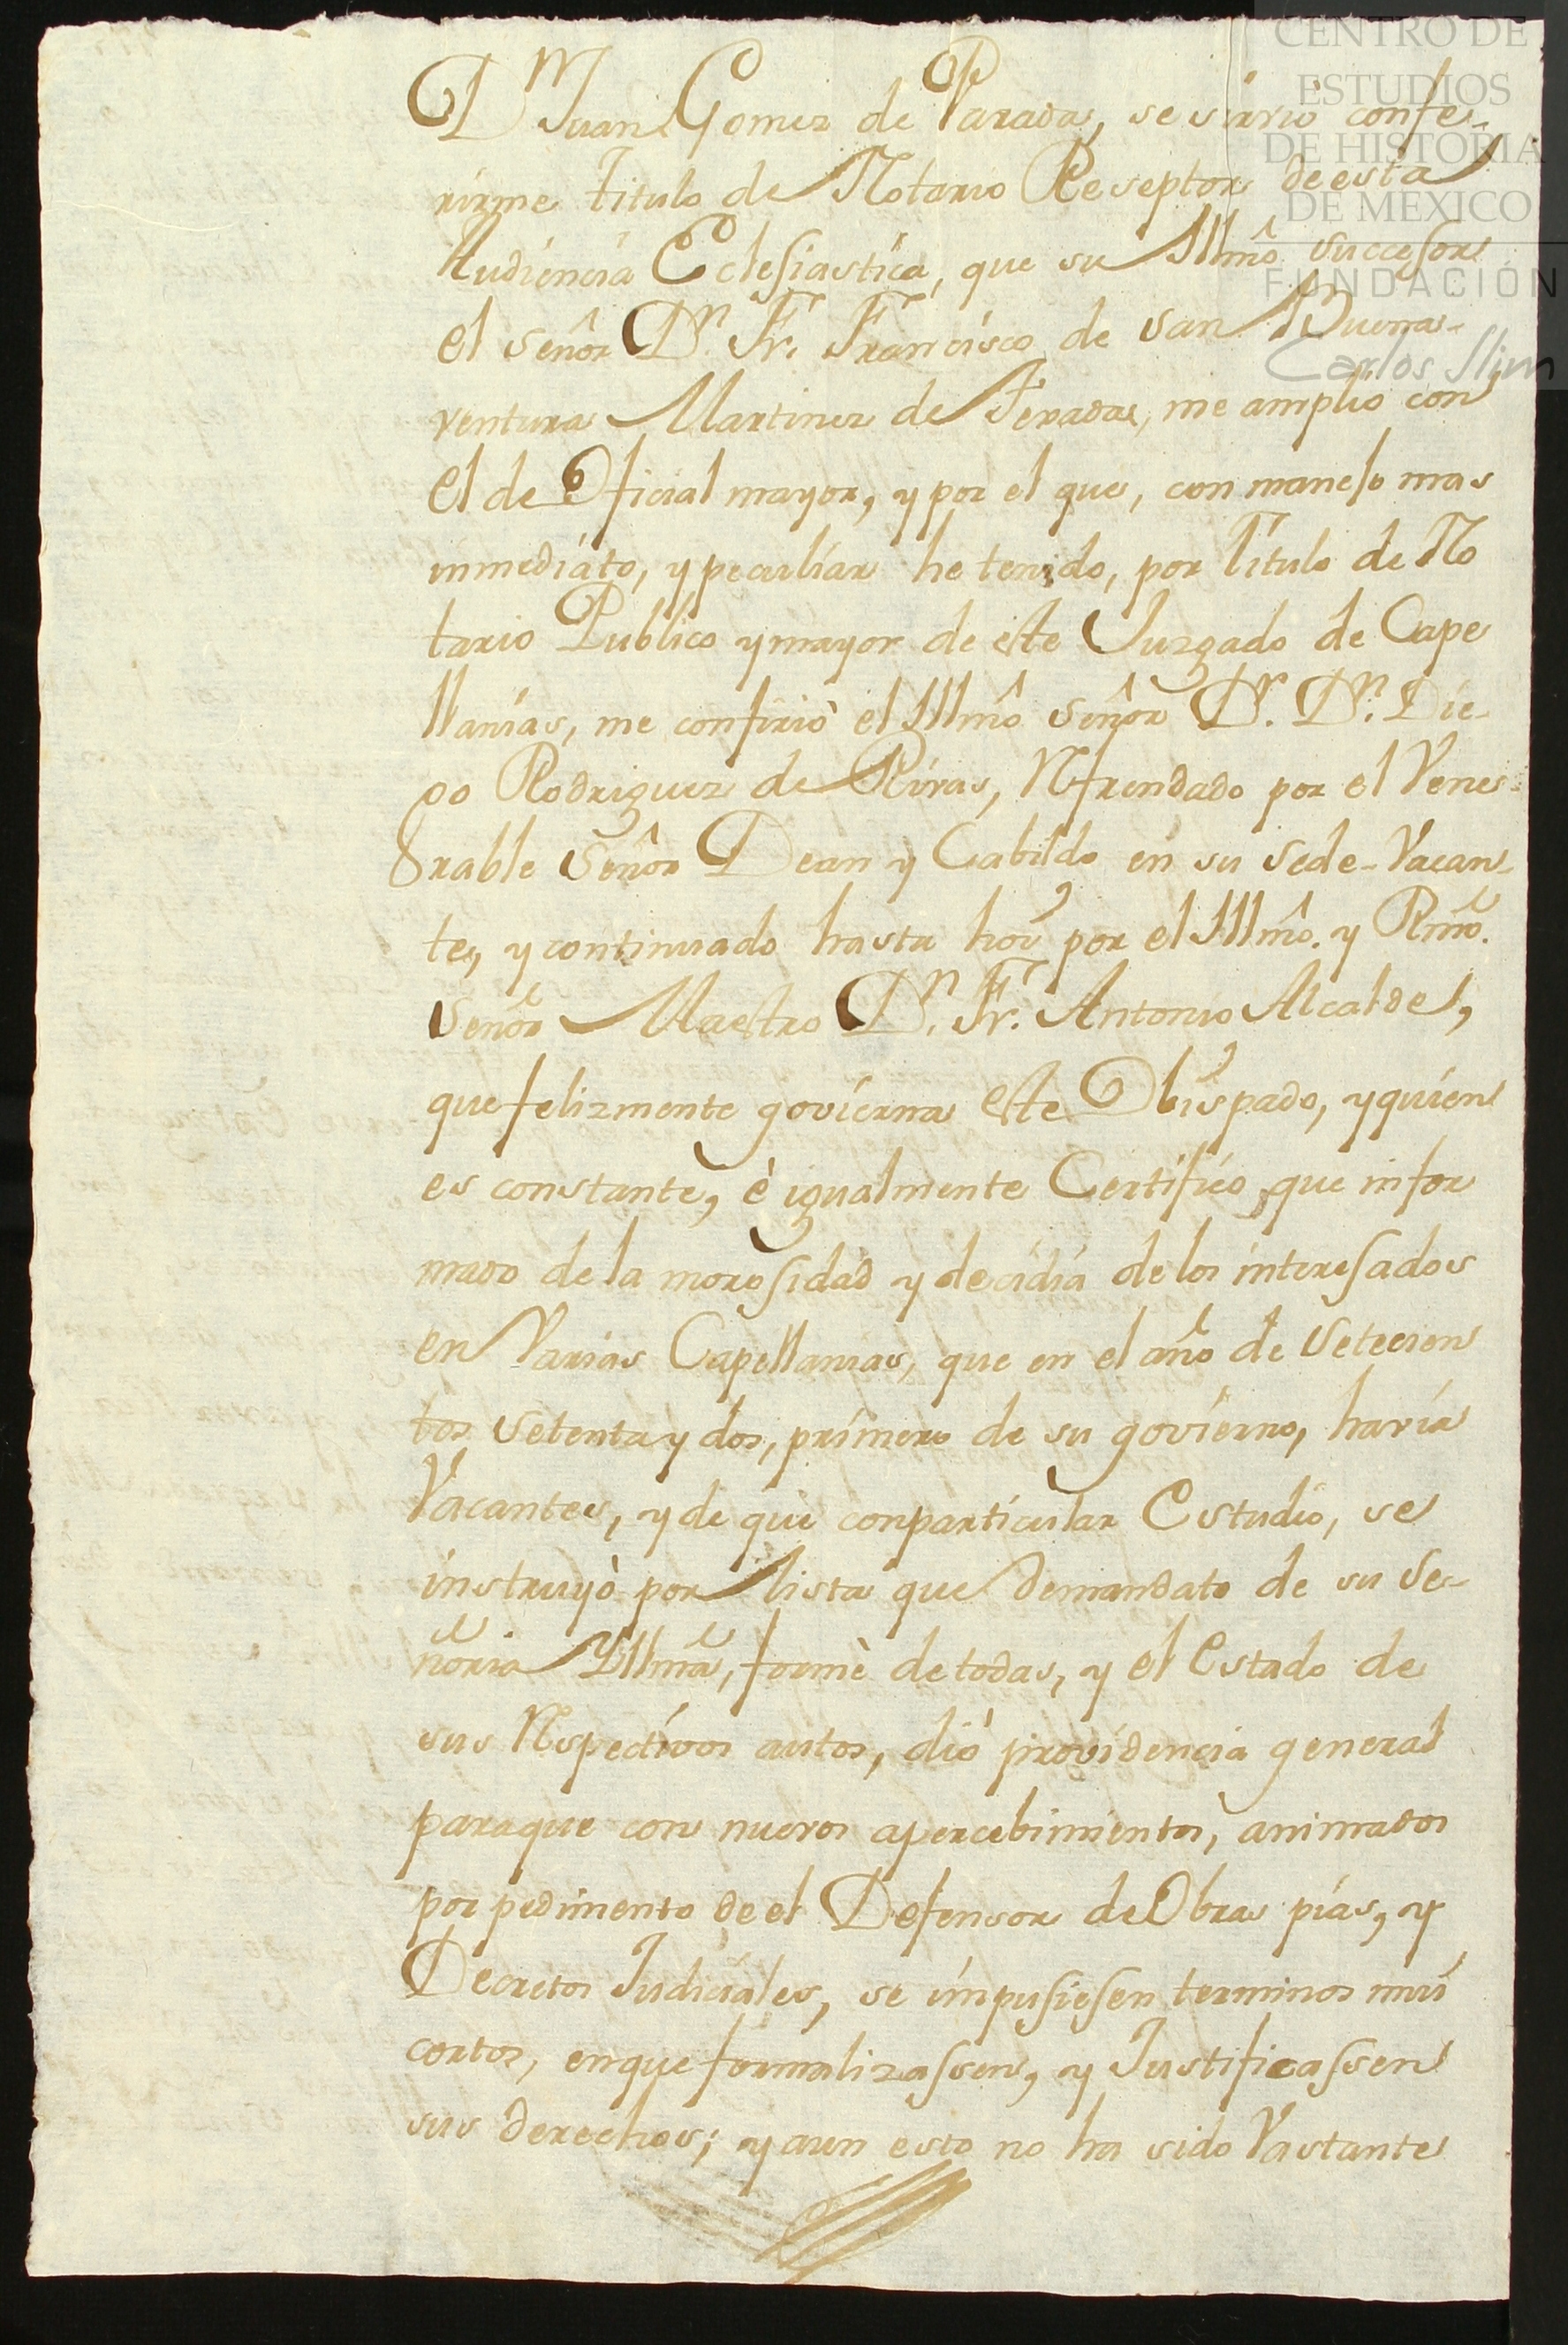 CENTRO DE
ESTUDIOS
DE HISTORIA
DE MEXICO
FUNDACIÓN
Carlos Slim
Dn Juan Gomez de Parada, se sirvió confe-
rirme titulo de Notario Reseptor de esta
Audiencia Eclesiastica, que su Illmô successor
el señôr Dn. Fr. Francisco de san Buena-
ventura Martinez de Texada, me amplió con
el de Oficial mayor, y por el que, con manejo mas
inmediato, y peculiar he tenido, por Titulo de No
tario Publico y mayor de este Juzgado de Cape
llanias, me confirió el Illmô señôr Dr. Dn. Die-
go Rodriguez de Rivas, Refrendado por el Vene-
rable señôr Dean y Cabildo en su sede-Vacan-
te, y continuado hasta hoy por el Illmô. y Rmô.
señôr Maestro Dn. Fr. Antonio Alcalde,
que felizmente govierna este Obispado, y quien
es constante, è igualmente Certifico, que infor
mado de la morosidad y decidia de los interesados
en Varias Capellanias, que en el año de setecien
tos setenta y dos, primero de su govierno, havia
Vacantes, y de que con particular Estudio, se
instruyò por lista que de mandato de su se-
ñoria Yllmâ, formè de todas, y el Estado de
sus Respectivos autos, diò providencia general
para que con nuevos apercebimientos, animados
por pedimento de el Defensor de Obras pías, y
Decretos Judiciales, se impusiesen terminos mui
cortos, en que formalizassen, y Justificassen
sus derechos; y aun esto no ha sido Vastante